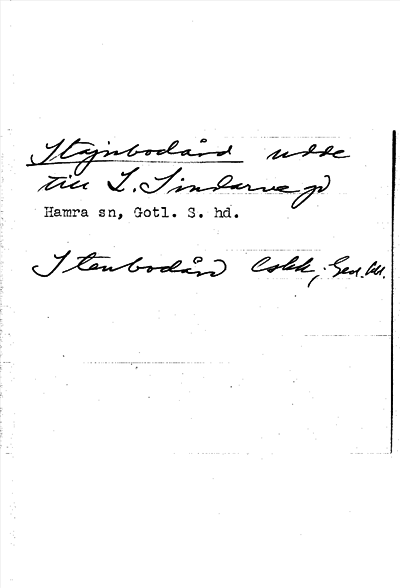 Stajnbodård udde
till L. Sindarve gd
Hamra sn, Gotl. S. hd.
Stenbodård